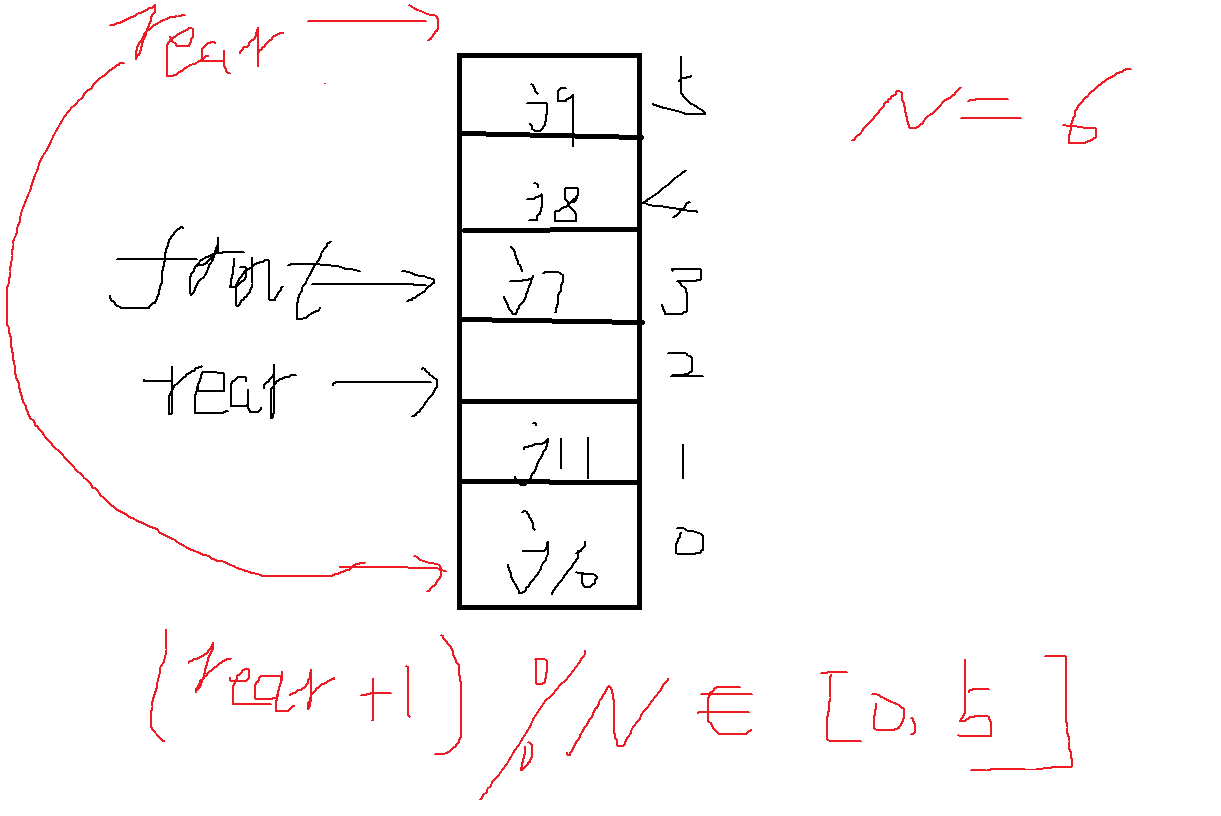 rear →
j9 5 N = 6
j8 4
front → j7 3
rear → 2
j11 1
j10 0
(rear + 1) % N ∈ [0, 5]